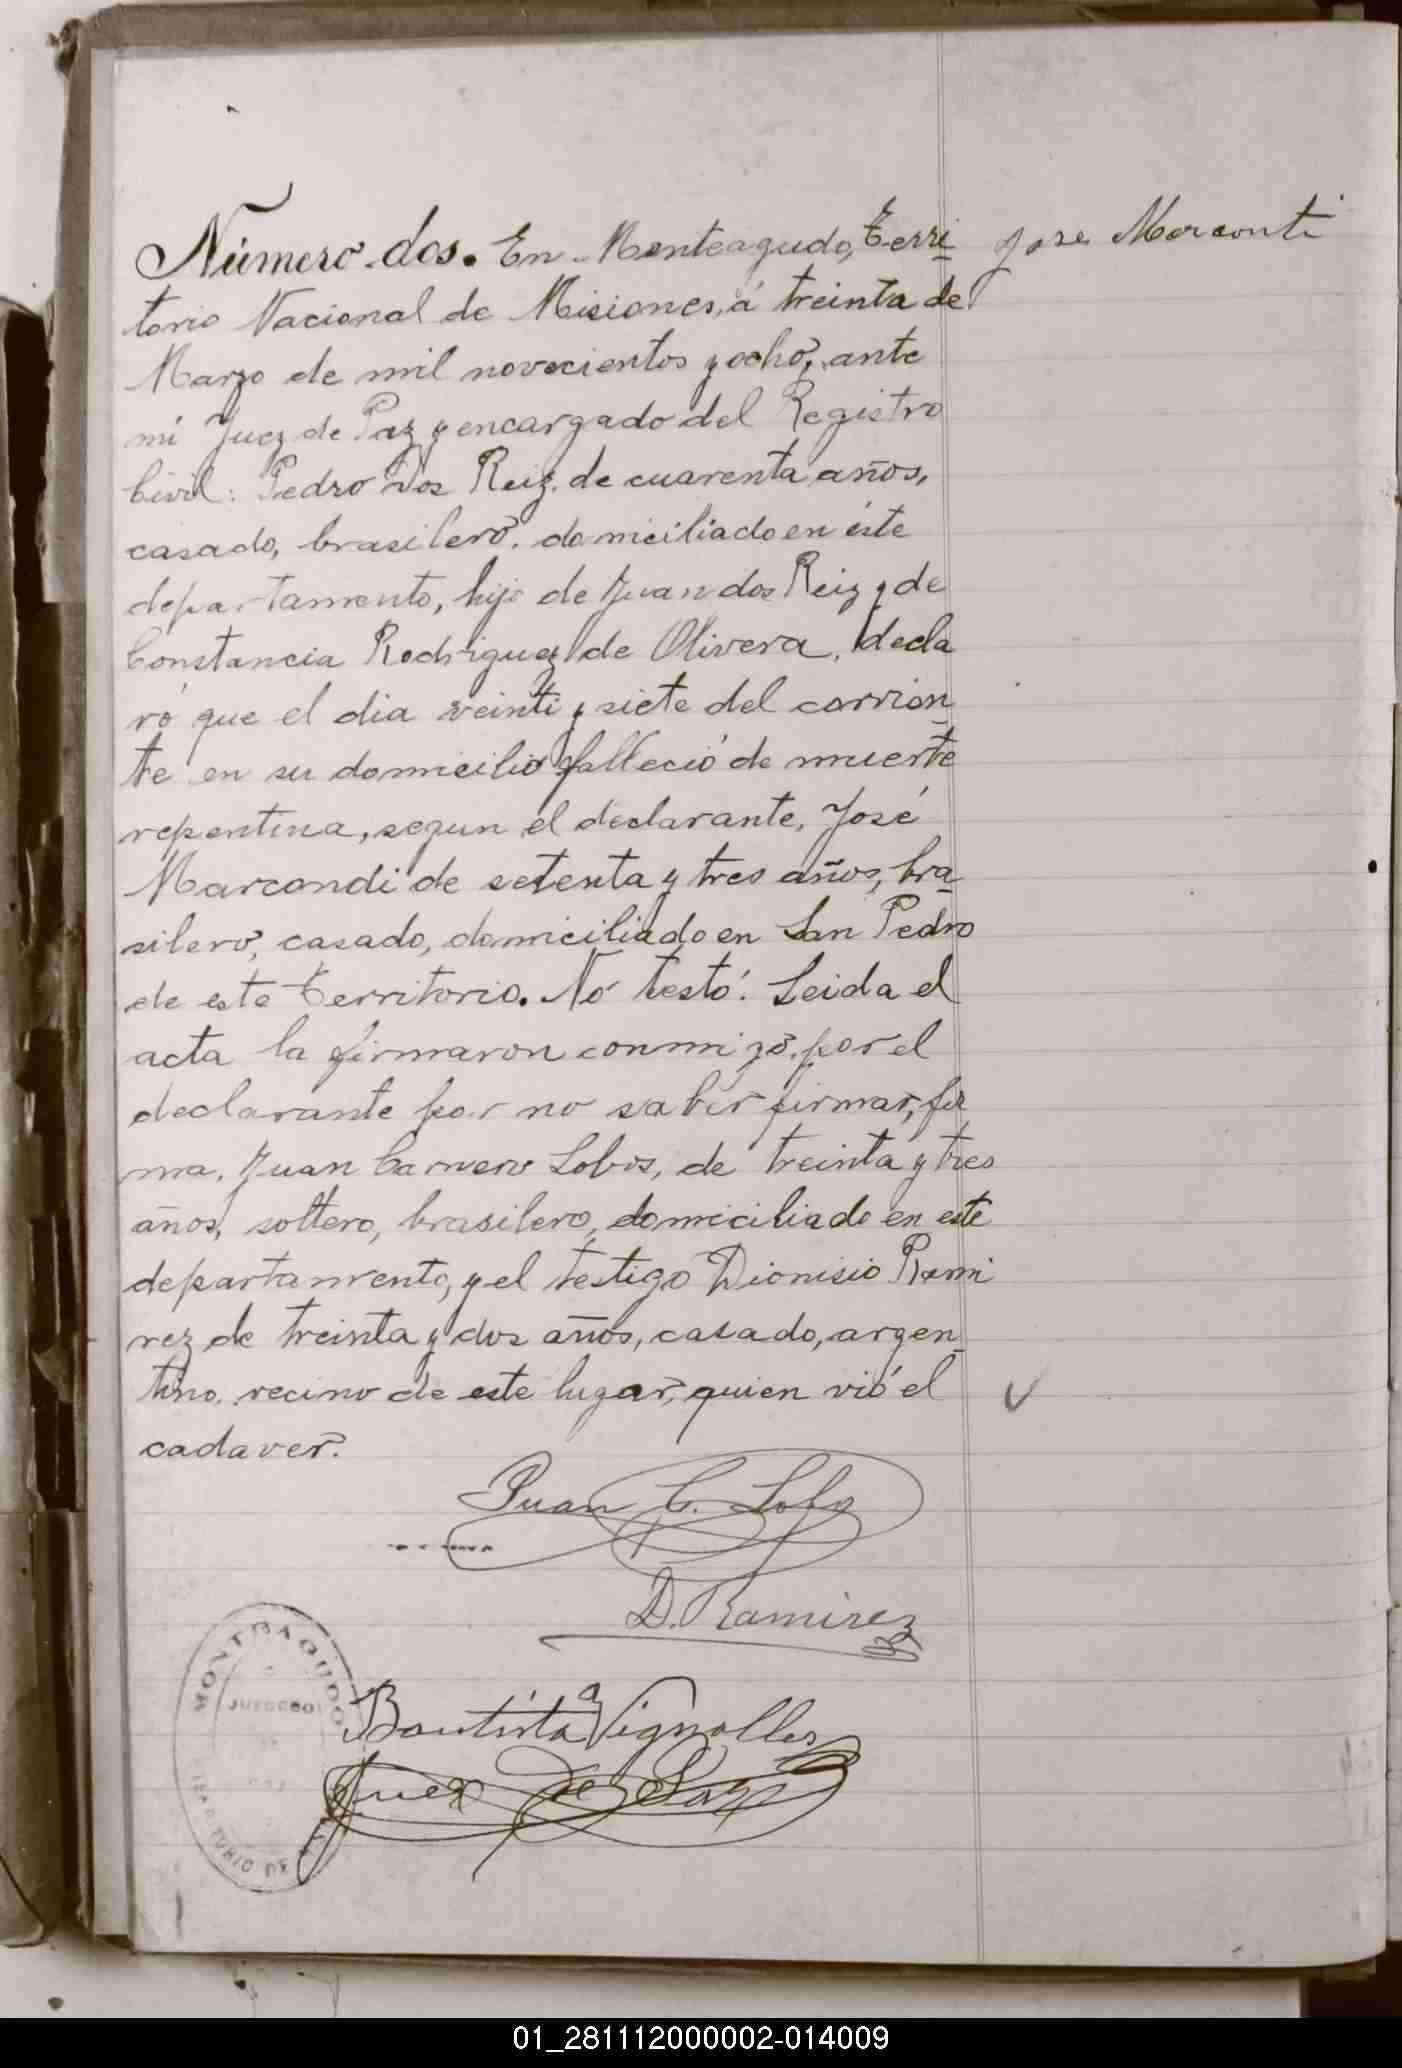 Número dos. En Monteagudo, Terri-
torio Nacional de Misiones, á treinta de
Marzo de mil novecientos y ocho, ante
mi Juez de Paz y encargado del Registro
Civil: Pedro Dos Reiz, de cuarenta años,
casado, brasilero, domiciliado en éste
departamento, hijo de Juan dos Reiz y de
Constancia Rodriguez de Olivera, decla
ró que el dia veinti y siete del corrien-
te en su domicilio falleció de muerte
repentina, segun el declarante, José
Marcondi de setenta y tres años, bra-
silero, casado, domiciliado en San Pedro
de este Territorio. Nó testó. Leida el
acta la firmaron conmigo, por el
declarante por no saber firmar, fir
ma, Juan Carnero Lobos, de treinta y tres
años, soltero, brasilero, domiciliado en este
departamento, y el testigo Dionisio Rami
rez de treinta y dos años, casado, argen-
tino, vecino de este lugar, quien vió el
cadaver.
Jose Marconti
Juan C. Lobo
D. Ramirez
Bautista Vignolles
Juez de Paz
MONTEAGUDO
JUZGADO
TERRITORIO DE
01_281112000002-014009